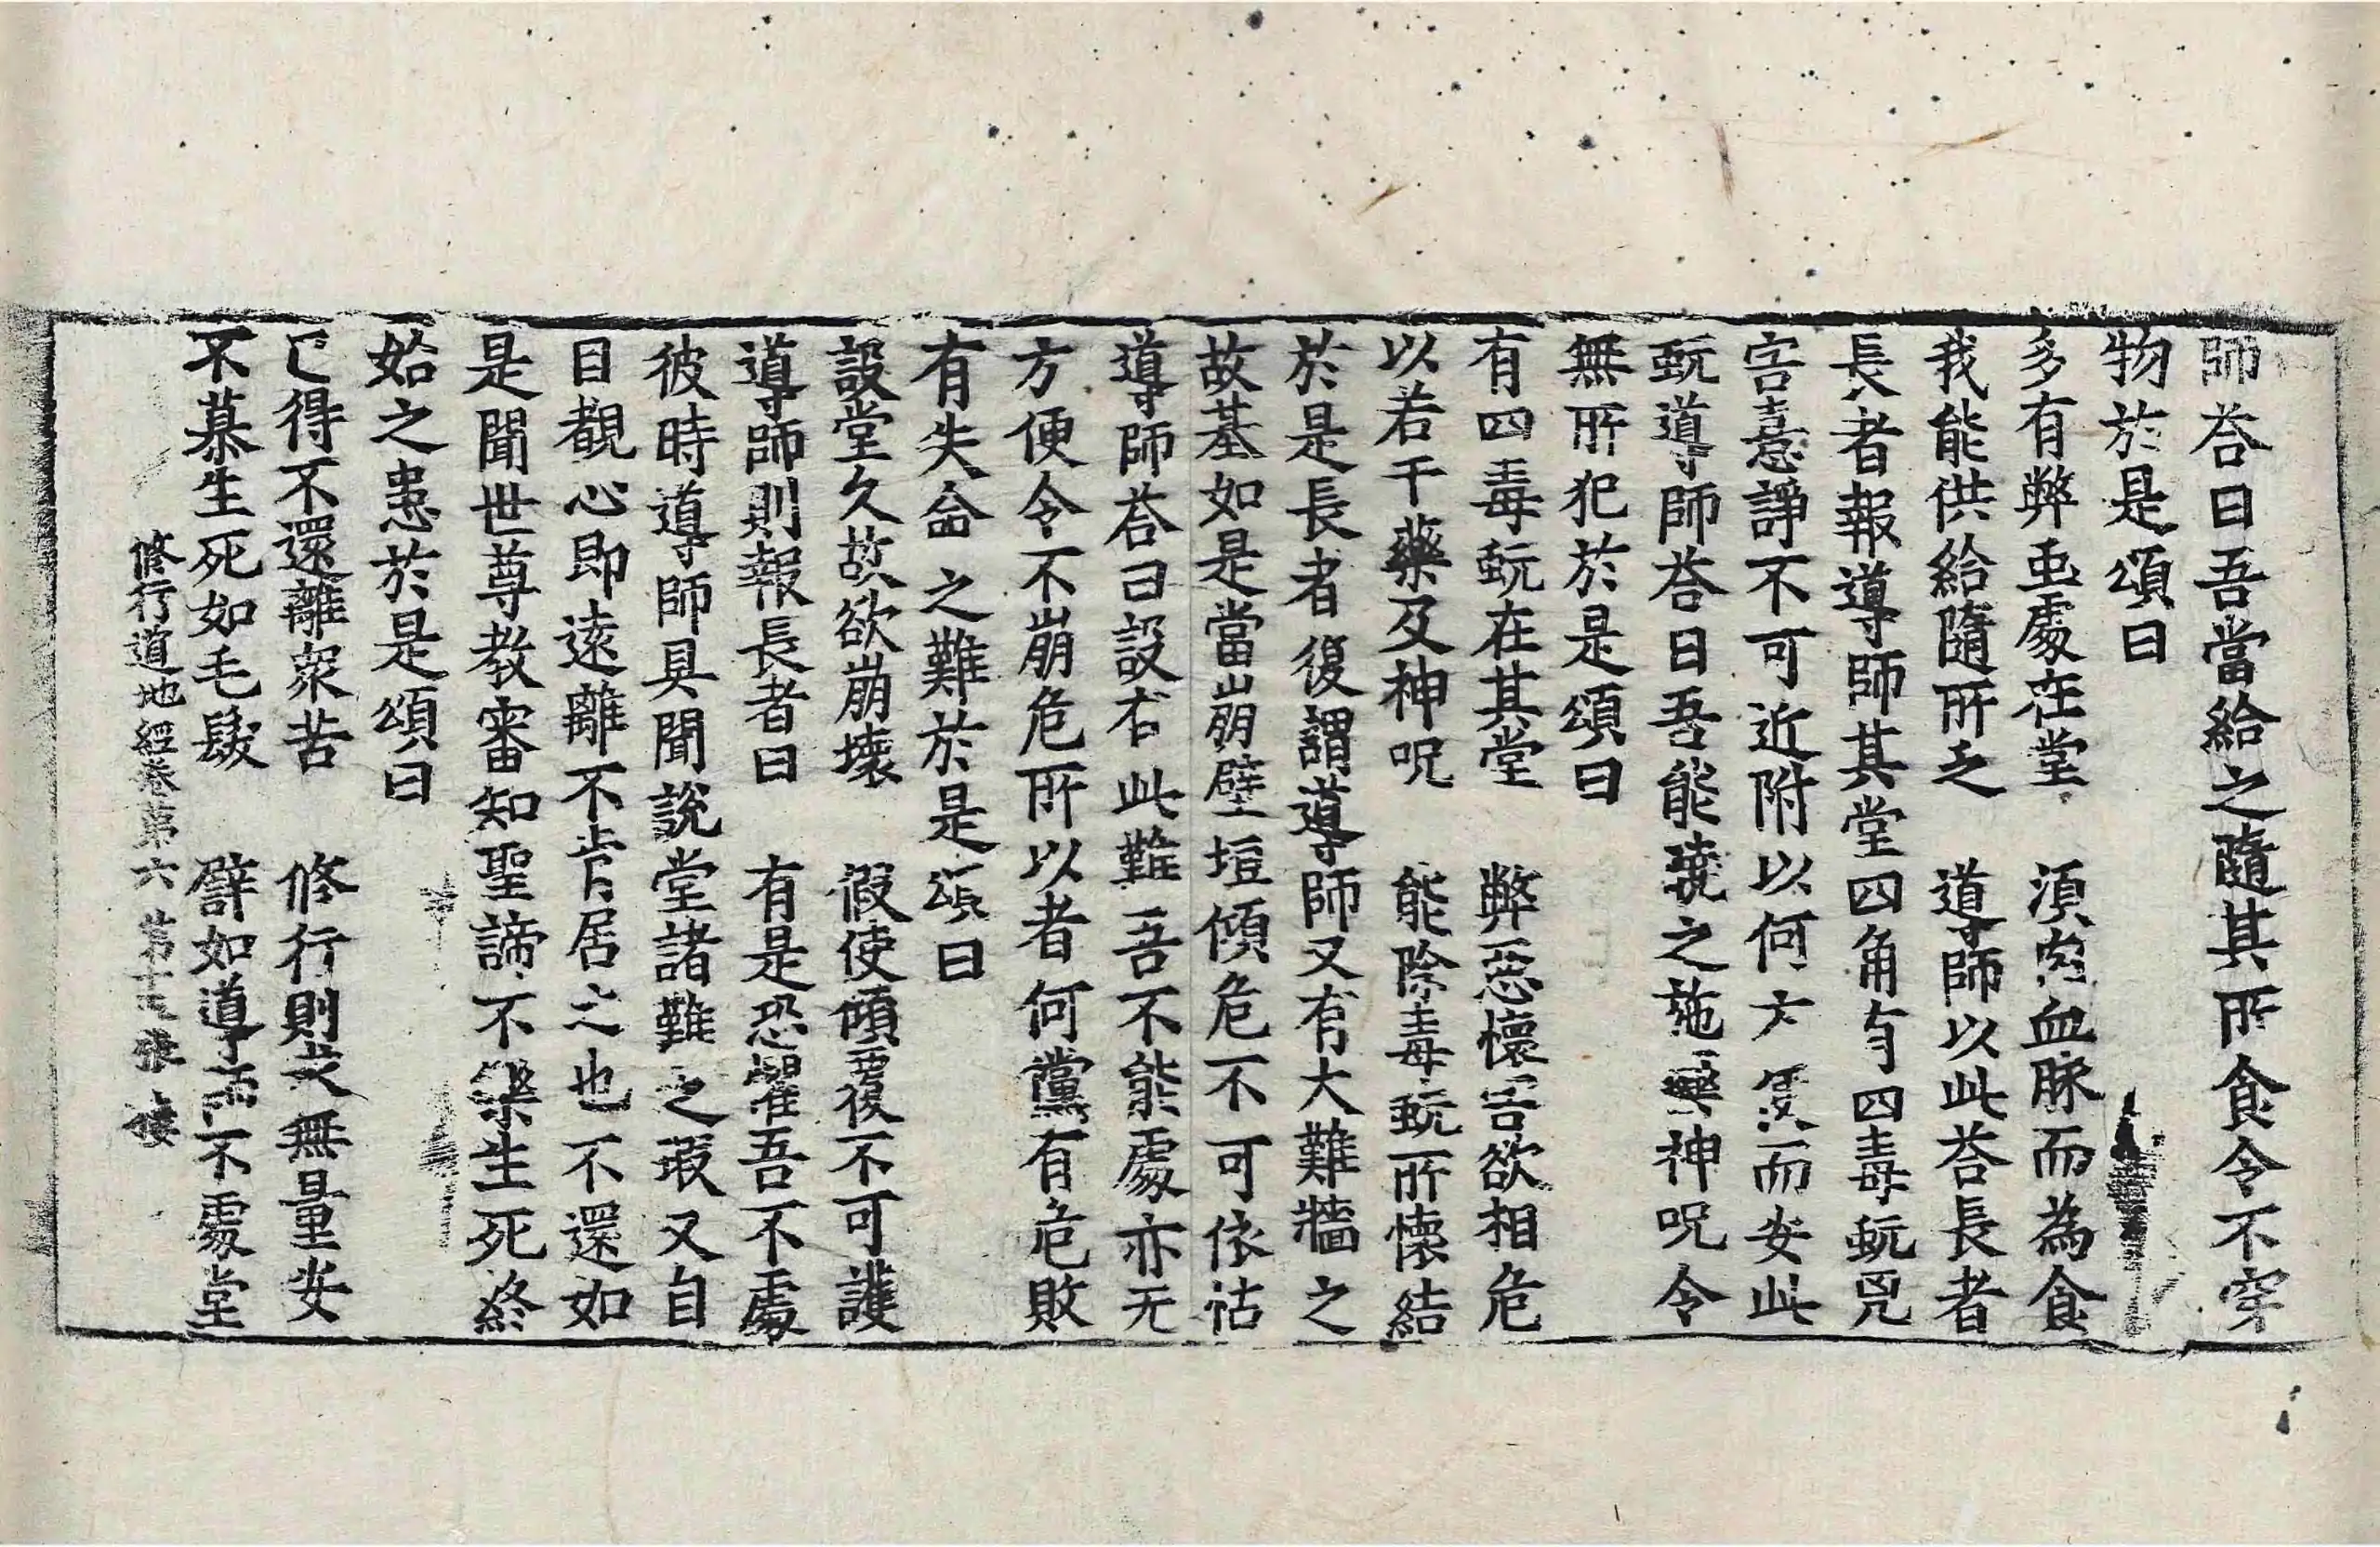 師荅曰吾當給之隨其所食令不穿
物於是頌曰
多有弊虫處在堂　須肉血脉而為食
我能供給隨所乏　導師以此荅長者
長者報導師其堂四角有四毒蚖兇
害憙諍不可近附以何方便而安此
蚖導師荅曰吾能曉之施藥神呪令
無所犯於是頌曰
有四毒蚖在其堂　弊惡懷害欲相危
以若干藥及神呪　能除毒蚖所懷結
於是長者復謂導師又有大難牆之
故基如是當崩壁垣傾危不可依怙
導師荅曰設有此難吾不能處亦无
方便令不崩危所以者何儻有危敗
有失命之難於是頌曰
設堂久故欲崩壞　假使傾覆不可護
導師則報長者曰　有是恐懼吾不處
彼時導師具聞說堂諸難之瑕又自
目覩心即遠離不肯居之也不還如
是聞世尊教審知聖諦不樂生死終
始之患於是頌曰
已得不還離衆苦　修行則求無量安
不慕生死如毛髮　譬如導師不處堂
修行道地經卷第六　第十　張